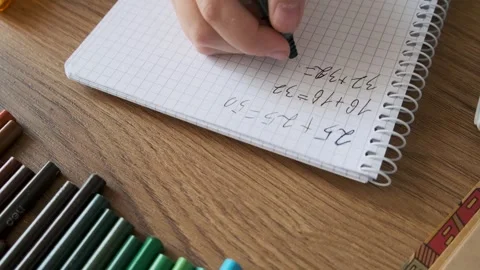 25+25=50
16+16=32
32+32=